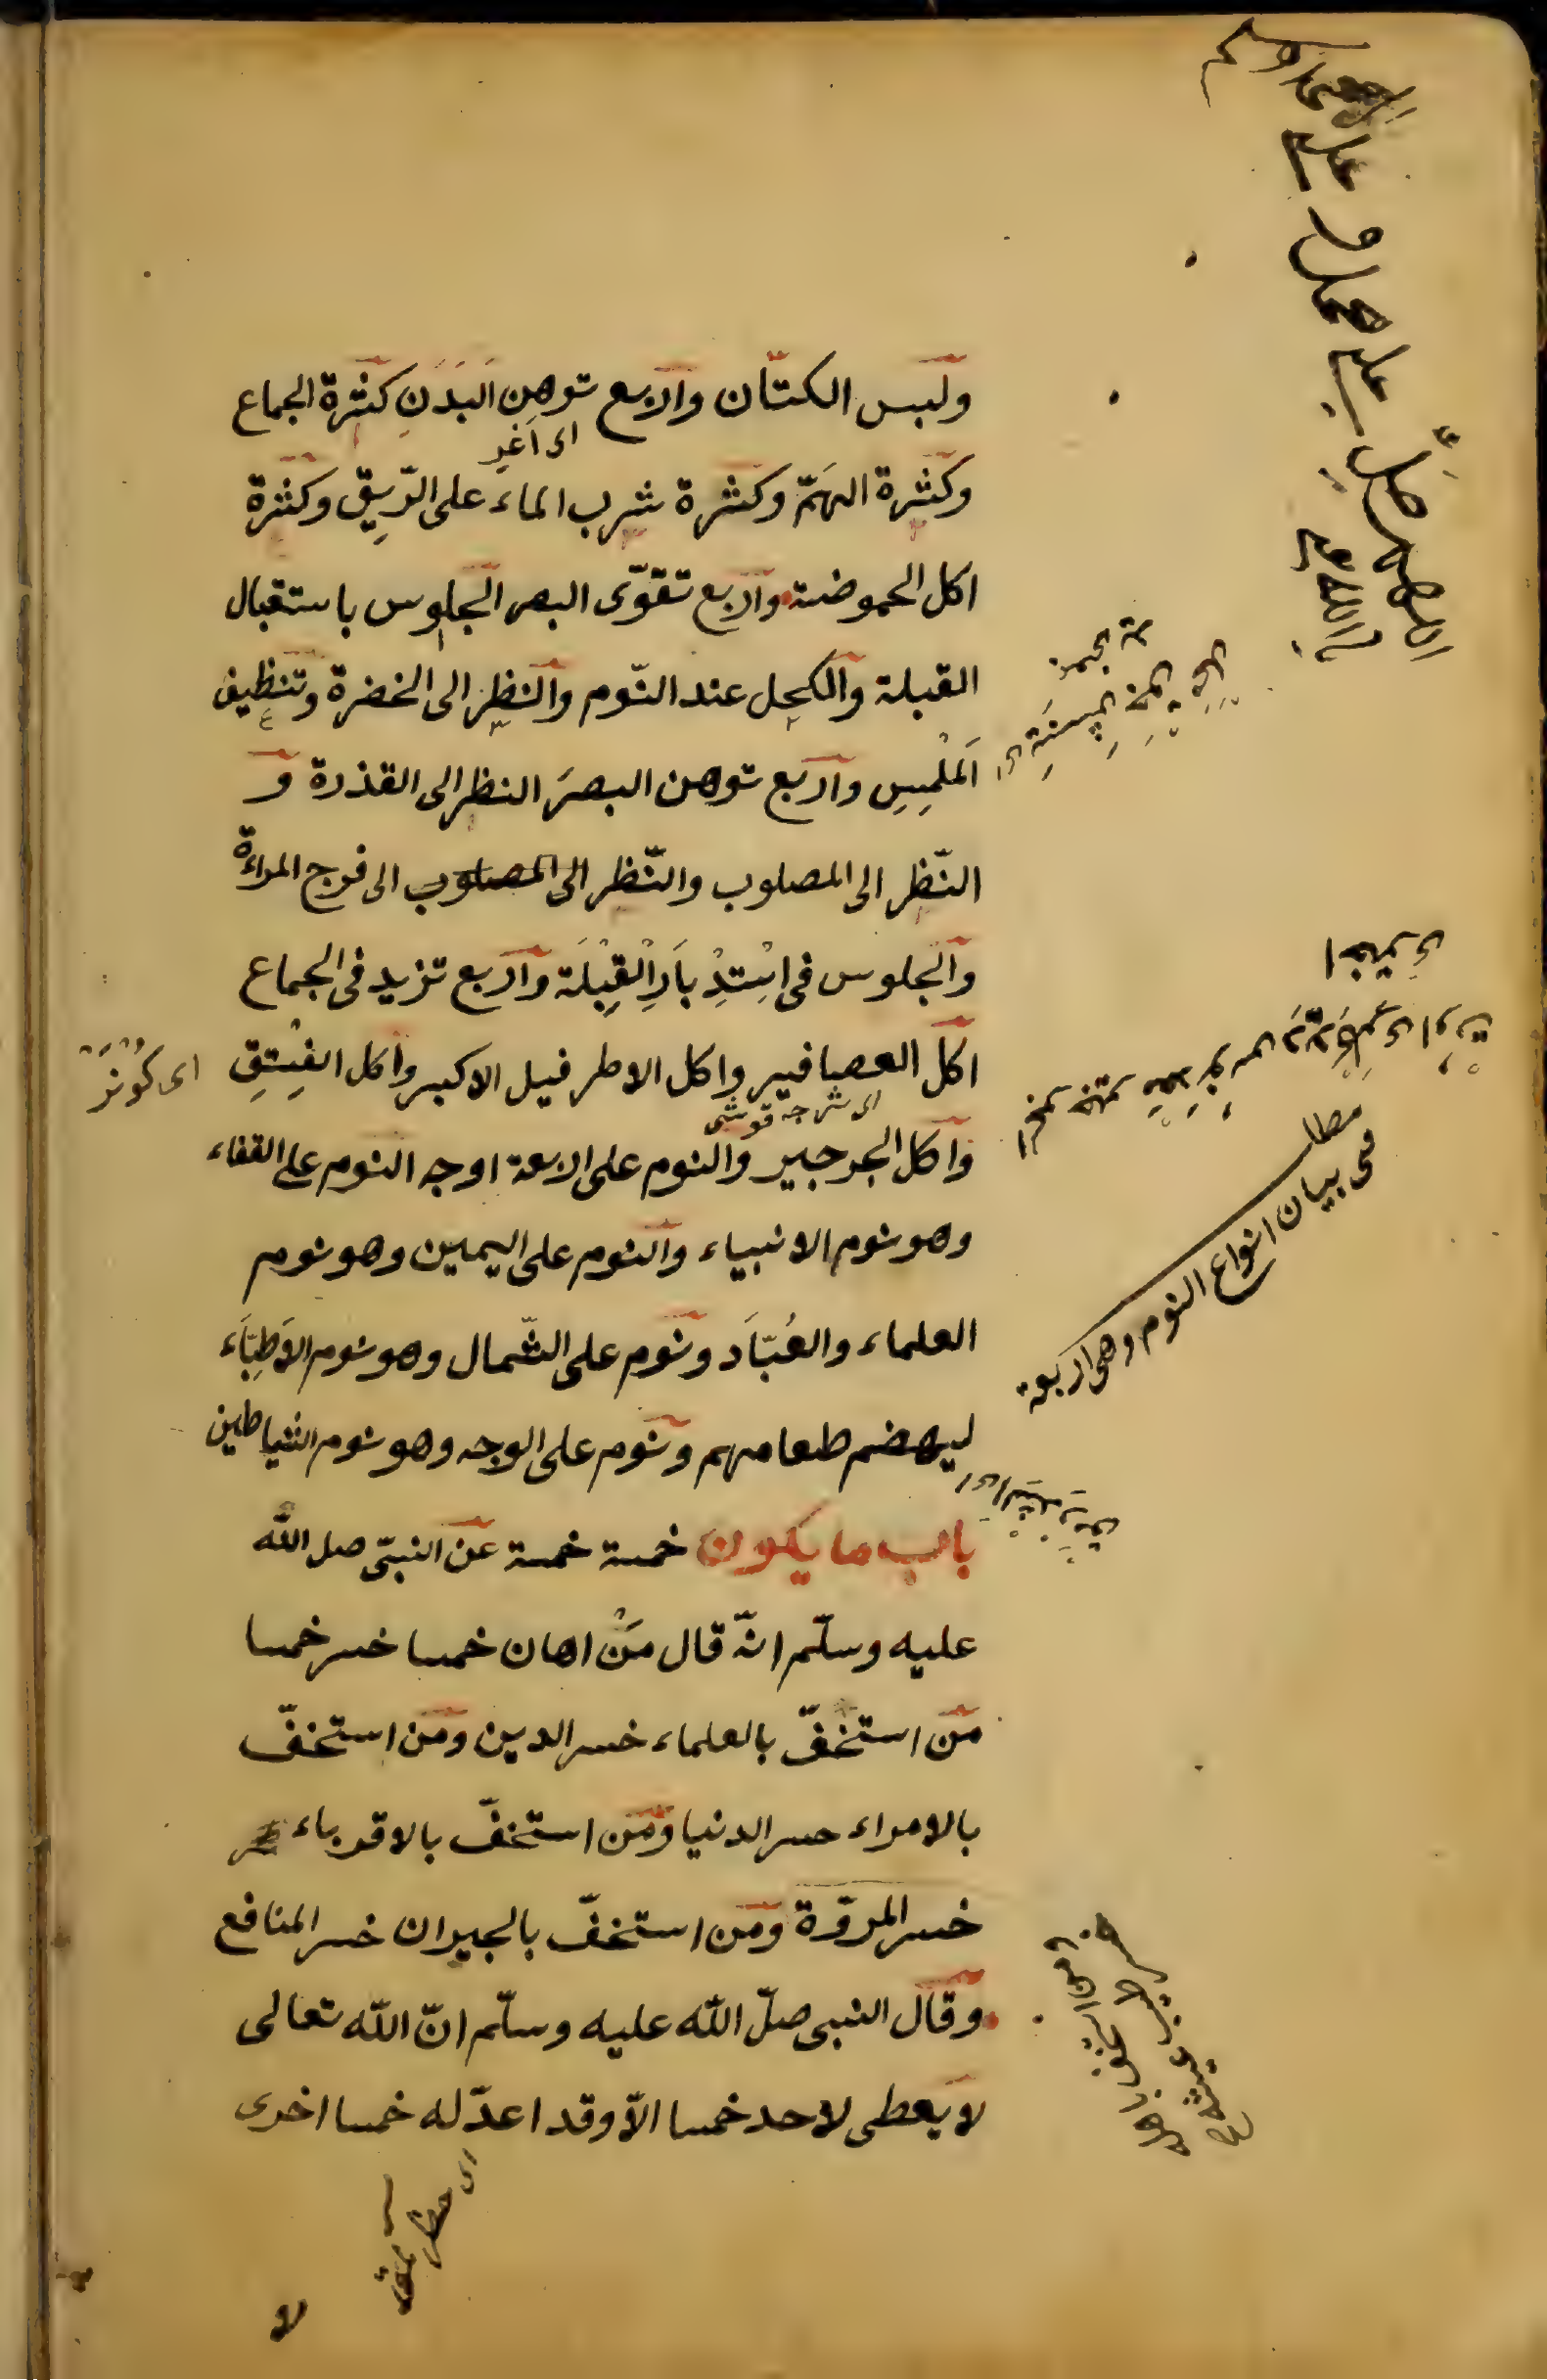 ولبس الكتّان واربع توهن البَدَنِ كثرة الجماع
وكثرة الهَمّ وكثرة شرب الماء على الرّيِق وكثرة
اكل الحموضة واربع تقوّى البصر الجلوس باستقبال
القبلة والكحل عند النّوم والنظر الى الخضرة وتنظيف
اَلمْلَمِسِ واربع توهن البصرَ النظر الى القذرة و
النّظر الى المصلوب والنّظر الى المصلوب الى فرج المراءة
والجلوس فى اسْتِدْبَارِ الْقِبْلَة واربع تزيد فى الجماع
اكل العصافير واكل الاطرفيل الاكبر واكل الفِسْتِقِ
واكل الجرجير والنوم على الاربعة اوجه النوم على القفاء
وهو نوم الانبياء والنوم على اليمين وهو نوم
العلماء والعُبّاَد ونوم على الشّمال وهو نوم الاَطِبّاَء
ليهضم طعامهم ونوم على الوجه وهو نوم الشياطين
باب ما يكون خمسة خمسة عن النبىّ صل اللّه
عليه وسلّم انّه قال مَنْ اهان خمسا خسر خمسا
مَن استخفّ بالعلماء خسر الدين ومَن استخفّ
بالامراء خسر الدنيا ومَن استخفّ بالاقرباء
خسر المروّة ومَن استخفّ بالجيران خسر المنافع
وقال النبى صلّ اللّه عليه وسلّم انّ اللّه تعالى
لا يعطى لاحد خمسا الاّ وقد اعدّ له خمسا اخرى
اللهم صلّ على محمد و على
مطلب
فى بيان انواع النوم وهى اربعة
ومن استخف باهله
خسر طيب عيشه